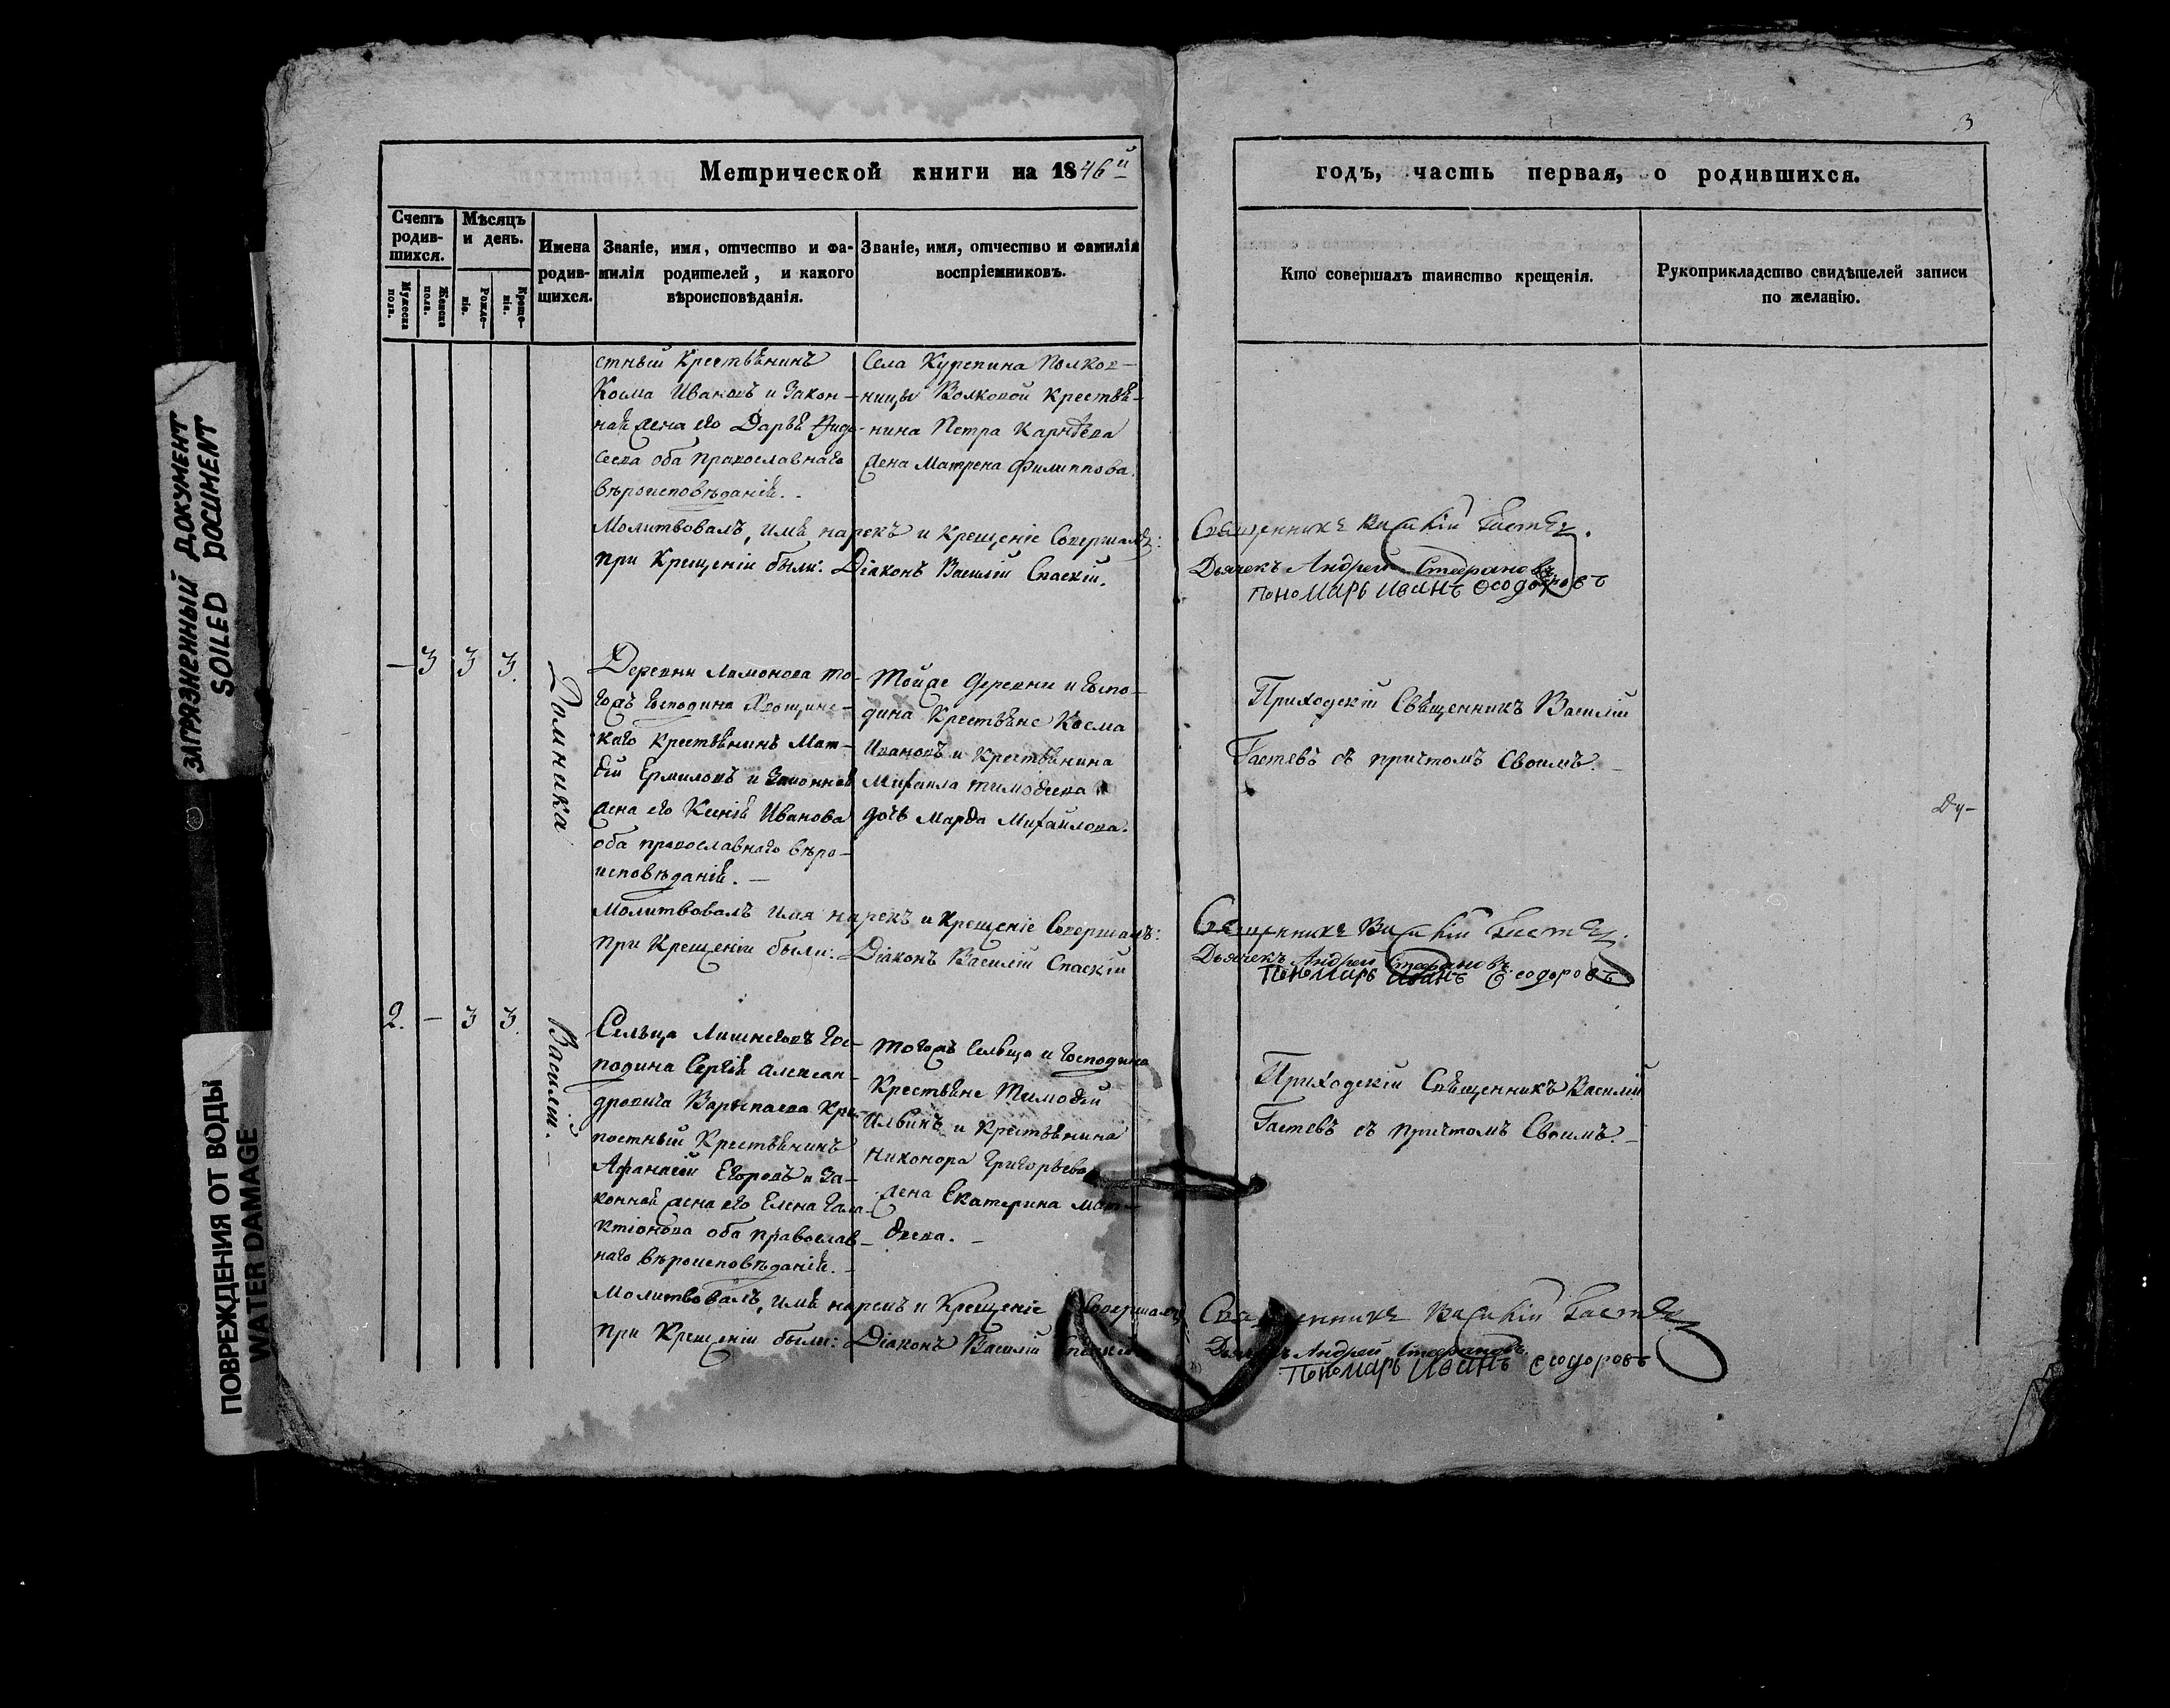 ЗАГРЯЗНЕННЫЙ ДОКУМЕНТ
SOILED DOCUMENT
ПОВРЕЖДЕНИЯ ОТ ВОДЫ
WATER DAMAGE
3
Метрической книги на 1846й
годъ, часть первая, о родившихся.
Счетъ родив-шихся.
Мужеска пола.
Женска пола.
Мѣсяцъ и день.
Рожде-нія.
Креще-нія.
Имена родив-шихся.
Званіе, имя, отчество и фа-
милія родителей, и какого
вѣроисповѣданія.
Званіе, имя, отчество и фамилія
воспріемниковъ.
Кто совершалъ таинство крещенія.
Рукоприкладство свидѣтелей записи
по желанію.
стный Крестьянинъ
Косма Ивановъ и Закон-
ная жена его Дарья
оба православнаго
вѣроисповѣданія.
Села Курепина Полков-
ницы Волковой Крестья-
нина Петра Карнѣева
жена Матрена Филиппова.
Молитвовалъ, имя нарекъ и Крещеніе Совершалъ:
при Крещеніи были: Діаконъ Василій Спаскій.
Священникъ Василій Гастевъ.
Дьячекъ Андрей Стефановъ
Пономарь Иванъ Ѳеодоровъ
— 3 3 3.
Домника
Деревни Ламонова то-
гожъ Господина
каго Крестьянинъ Мат-
ѳій Ермиловъ и Законная
жена его Ксенія Иванова
оба православнаго вѣро-
исповѣданія. —
Тойже деревни и Госпо-
дина Крестьяне Косма
Ивановъ и Крестьянина
Михаила Тимоѳеева
дочь Марѳа Михайлова.
Приходскій Священникъ Василій
Гастевъ съ причтомъ Своимъ. —
Ду-
Молитвовалъ имя нарекъ и Крещеніе Совершалъ:
при Крещеніи были: Діаконъ Василій Спаскій
Священникъ Василій Гастевъ.
Дьячекъ Андрей Стефановъ
Пономарь Иванъ Ѳеодоровъ
2. — 3 3.
Василій. —
Сельца Лишнеговъ Гос-
подина Сергія Алексан-
дровича Варыпаева Крѣ-
постный Крестьянинъ
Афанасій Егоровъ и за-
конная жена его Елена Гала-
ктіонова оба православ-
наго вѣроисповѣданія. —
Тогожъ Сельца и Господина
Крестьяне Тимоѳій
Ильинъ и Крестьянина
Никонора Григорьева
жена Екатерина Мат-
ѳеева. —
Приходскій Священникъ Василій
Гастевъ съ причтомъ Своимъ. —
Молитвовалъ, имя нарекъ и Крещеніе Совершалъ
при Крещеніи были: Діаконъ Василій Спаскій
Священникъ Василій Гастевъ
Дьячекъ Андрей Стефановъ.
Пономарь Иванъ Ѳеодоровъ